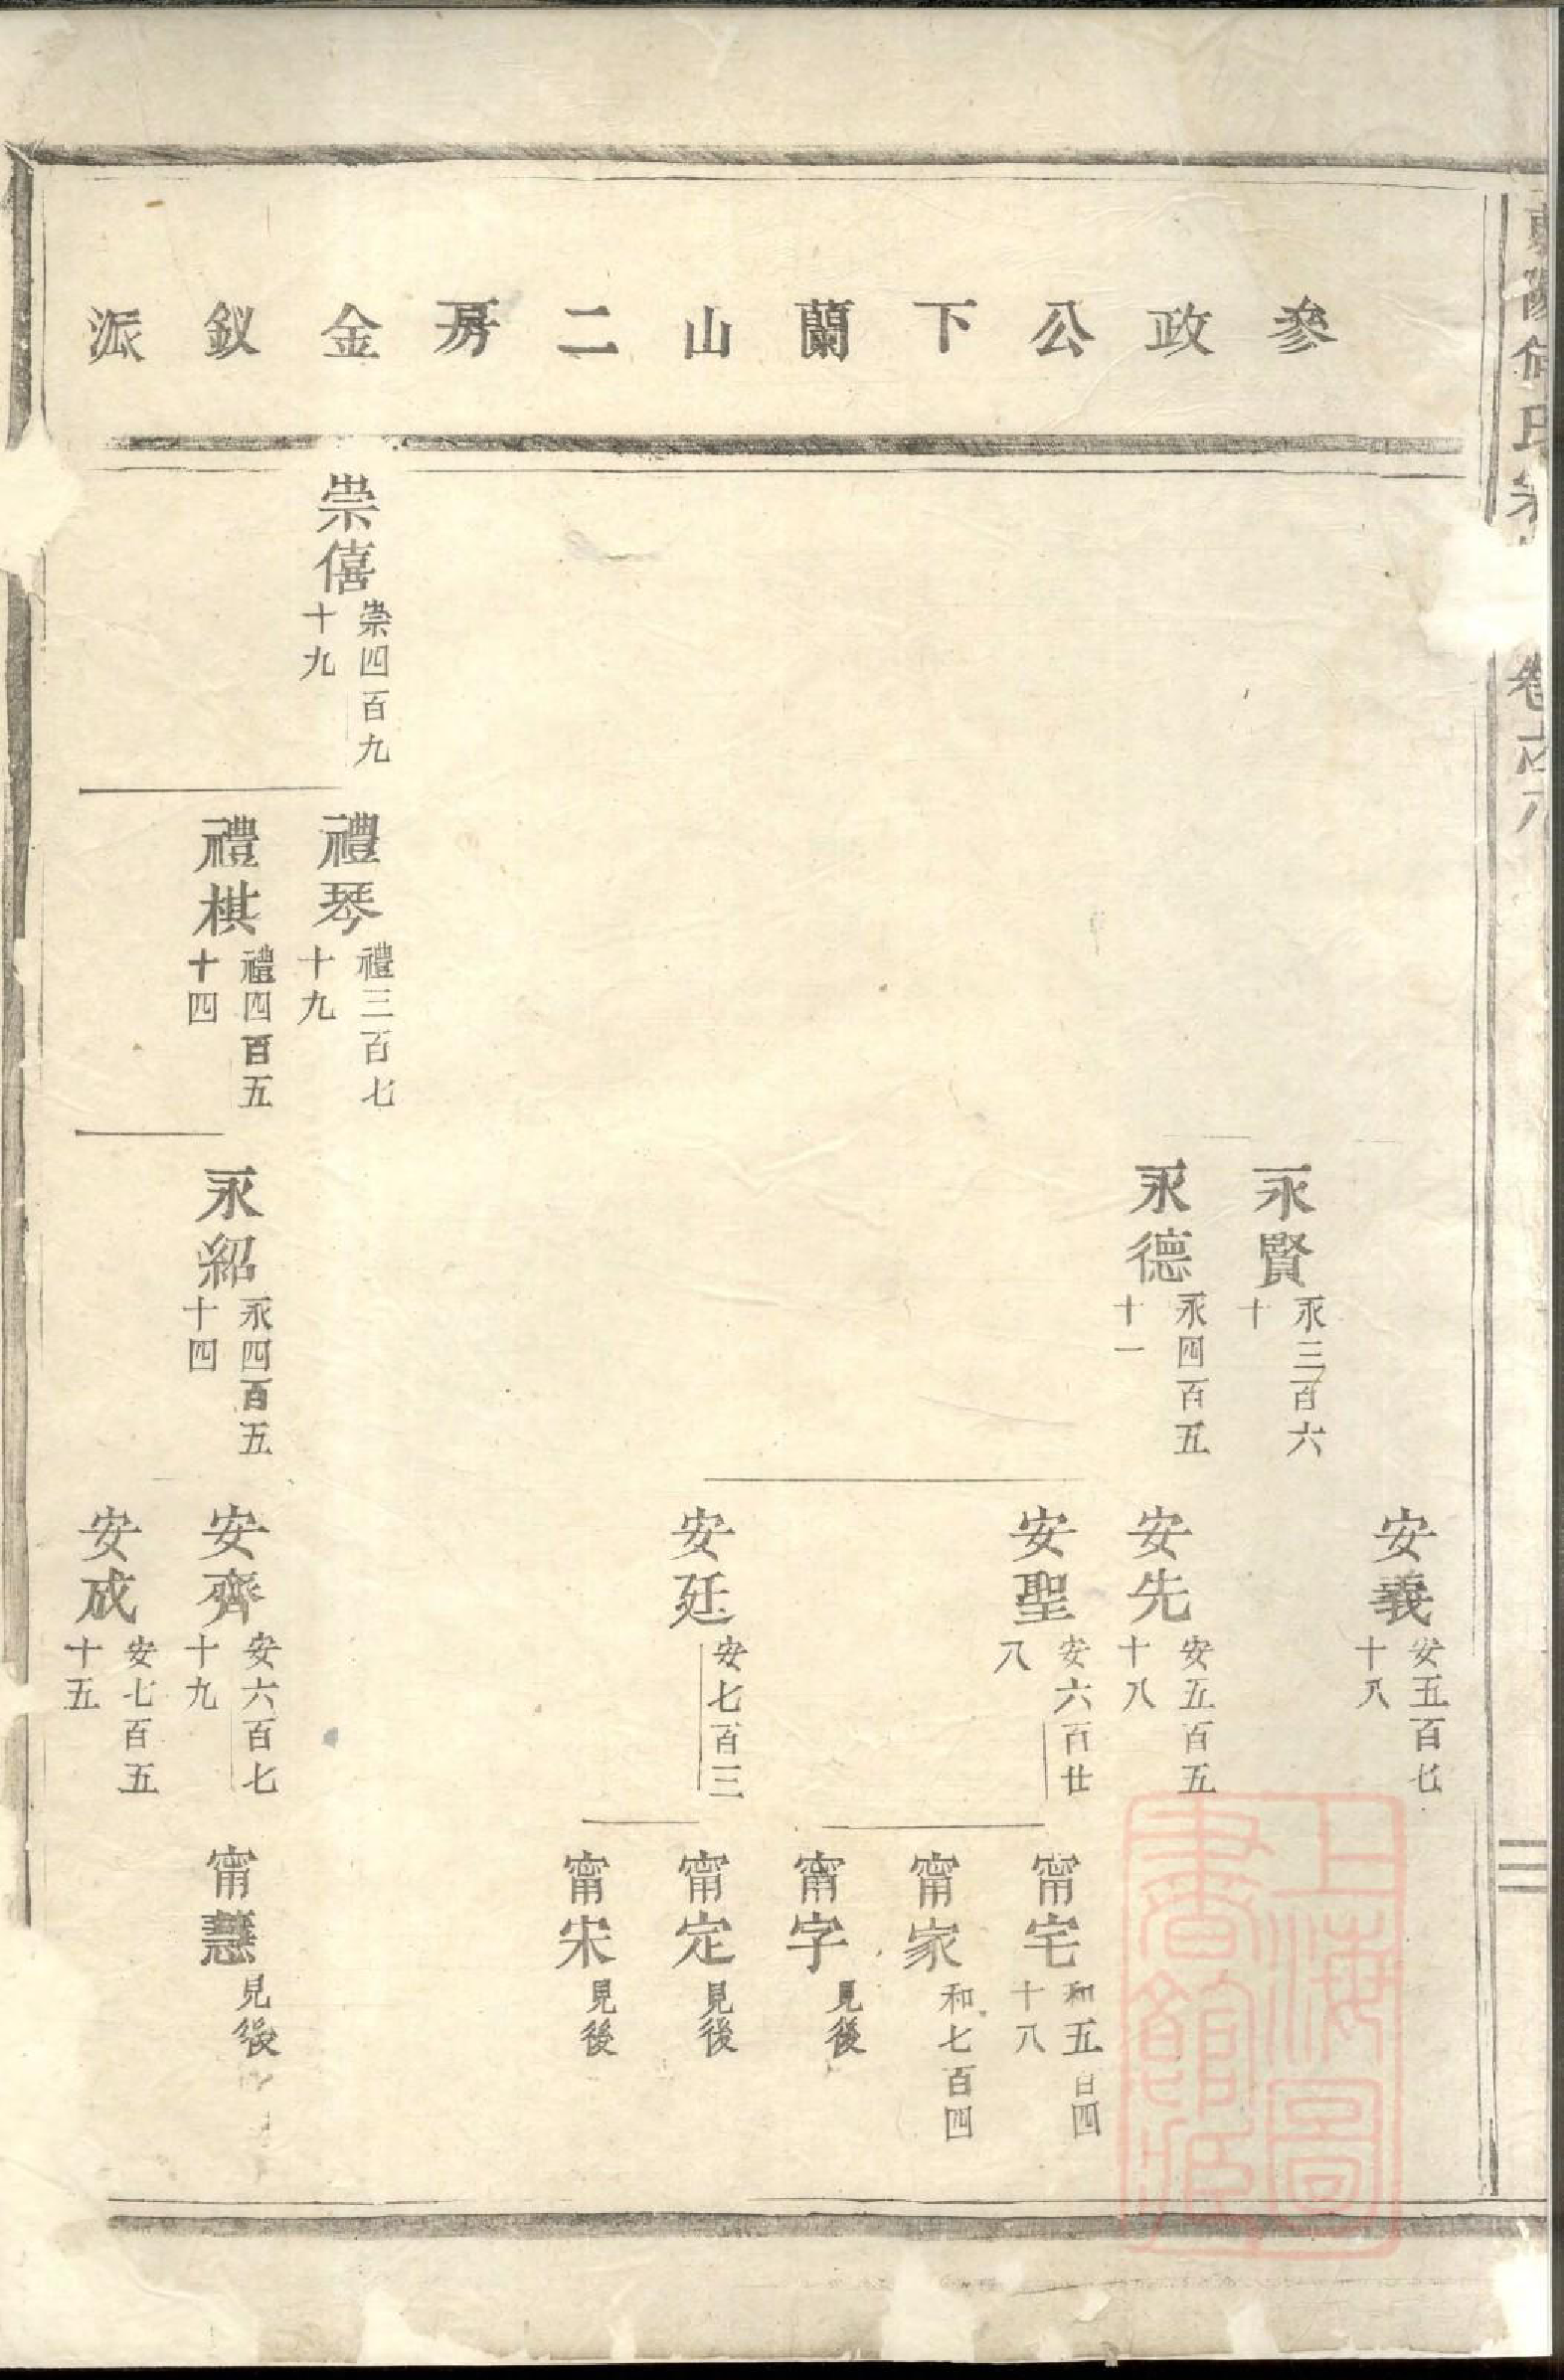 參政公下蘭山二房金釵派
崇僖 崇四百九十九
禮琴 禮三百七十九
禮棋 禮四百五十四
永賢 永三百六十
永德 永四百五十一
永紹 永四百五十四
安義 安五百七十八
安先 安五百五十八
安聖 安六百廿八
安廷 安七百三
安齊 安六百七十九
安成 安七百五十五
甯宅 和五百四十八
甯家 和七百四
甯字 見後
甯定 見後
甯宋 見後
甯慧 見後
氏
卷之
三
上海圖書館藏